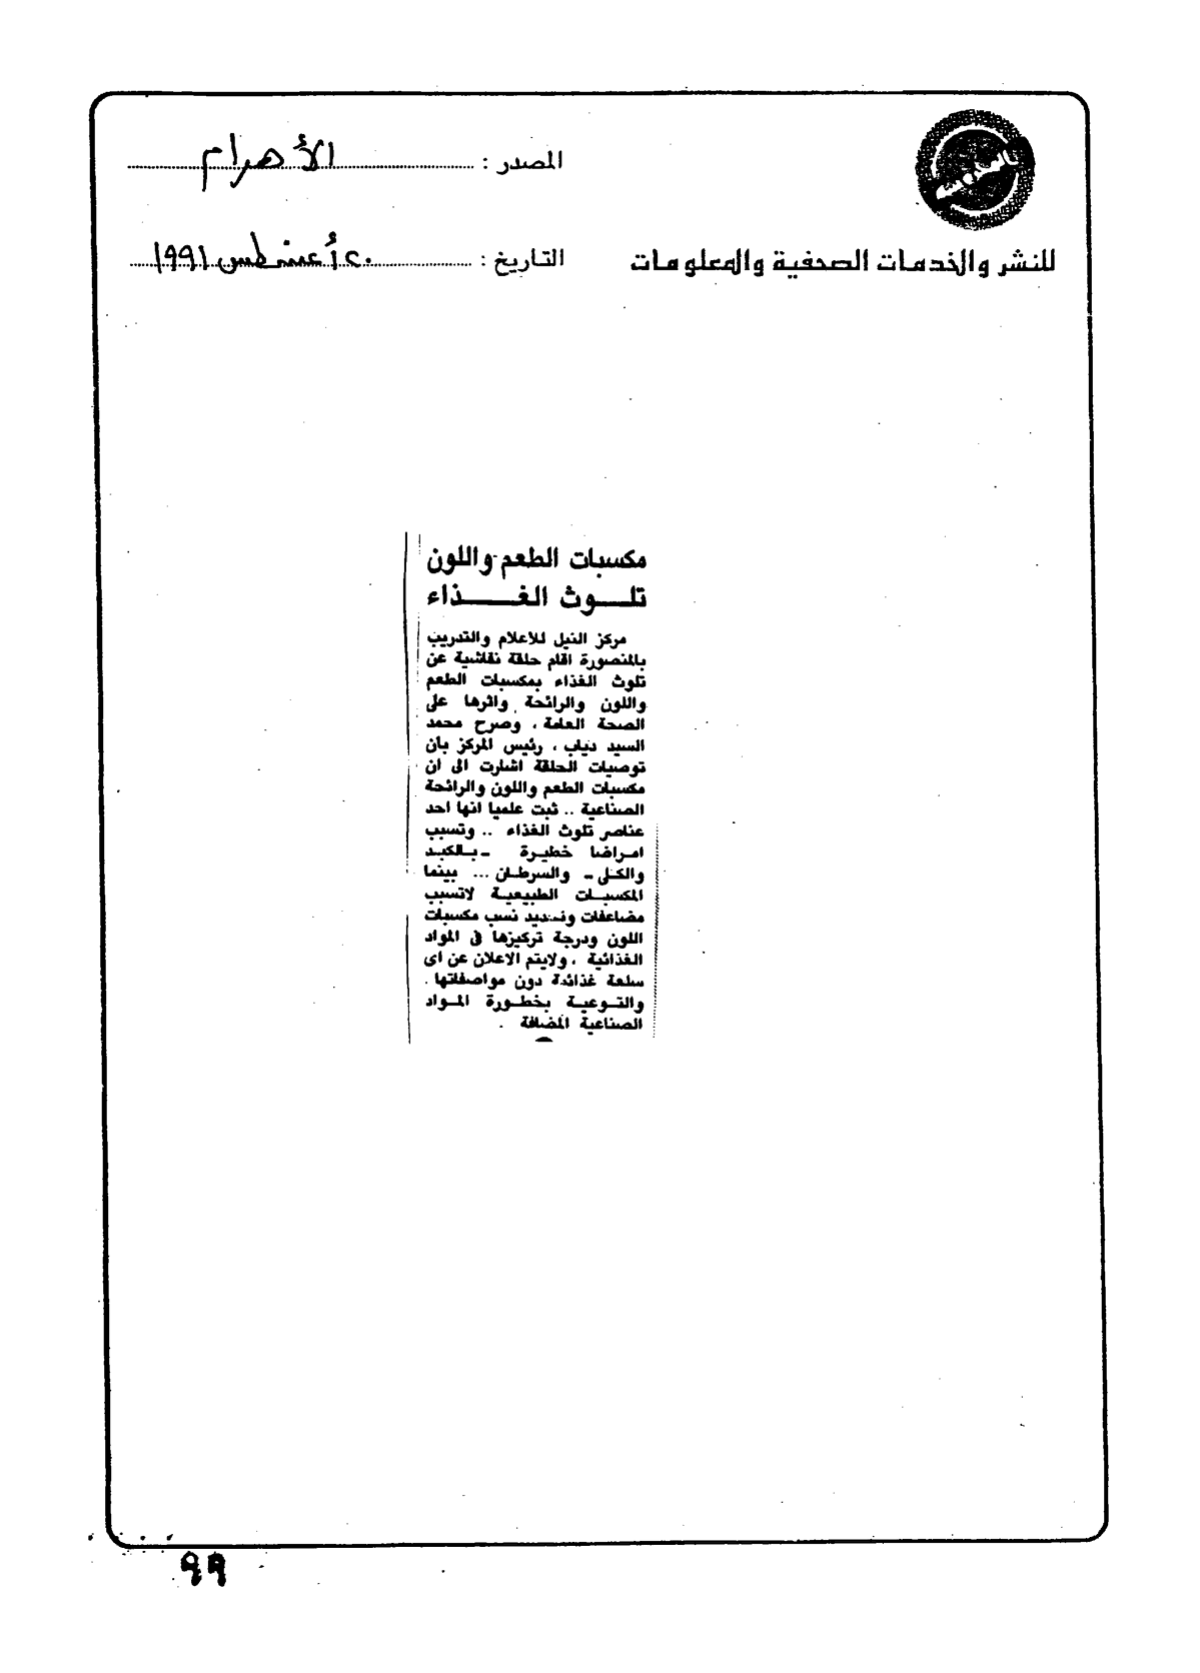 المصدر : الأهرام
للنشر والخدمات الصحفية والمعلومات
التاريخ : ٢٠ أغسطس ١٩٩١
مكسبات الطعم واللون
تلوث الغذاء
مركز النيل للاعلام والتدريب
بالمنصورة اقام حلقة نقاشية عن
تلوث الغذاء بمكسبات الطعم
واللون والرائحة واثرها على
الصحة العامة ، وصرح محمد
السيد دياب ، رئيس المركز بأن
توصيات الحلقة اشارت الى ان
مكسبات الطعم واللون والرائحة
الصناعية .. ثبت علميا انها احد
عناصر تلوث الغذاء .. وتسبب
امراضا خطيرة - بالكبد
والكلى - والسرطان ... بينما
المكسبات الطبيعية لاتسبب
مضاعفات وتحديد نسب مكسبات
اللون ودرجة تركيزها فى المواد
الغذائية ، ولايتم الاعلان عن اى
سلعة غذائية دون مواصفاتها .
والتوعية بخطورة المواد
الصناعية المضافة .
٩٩